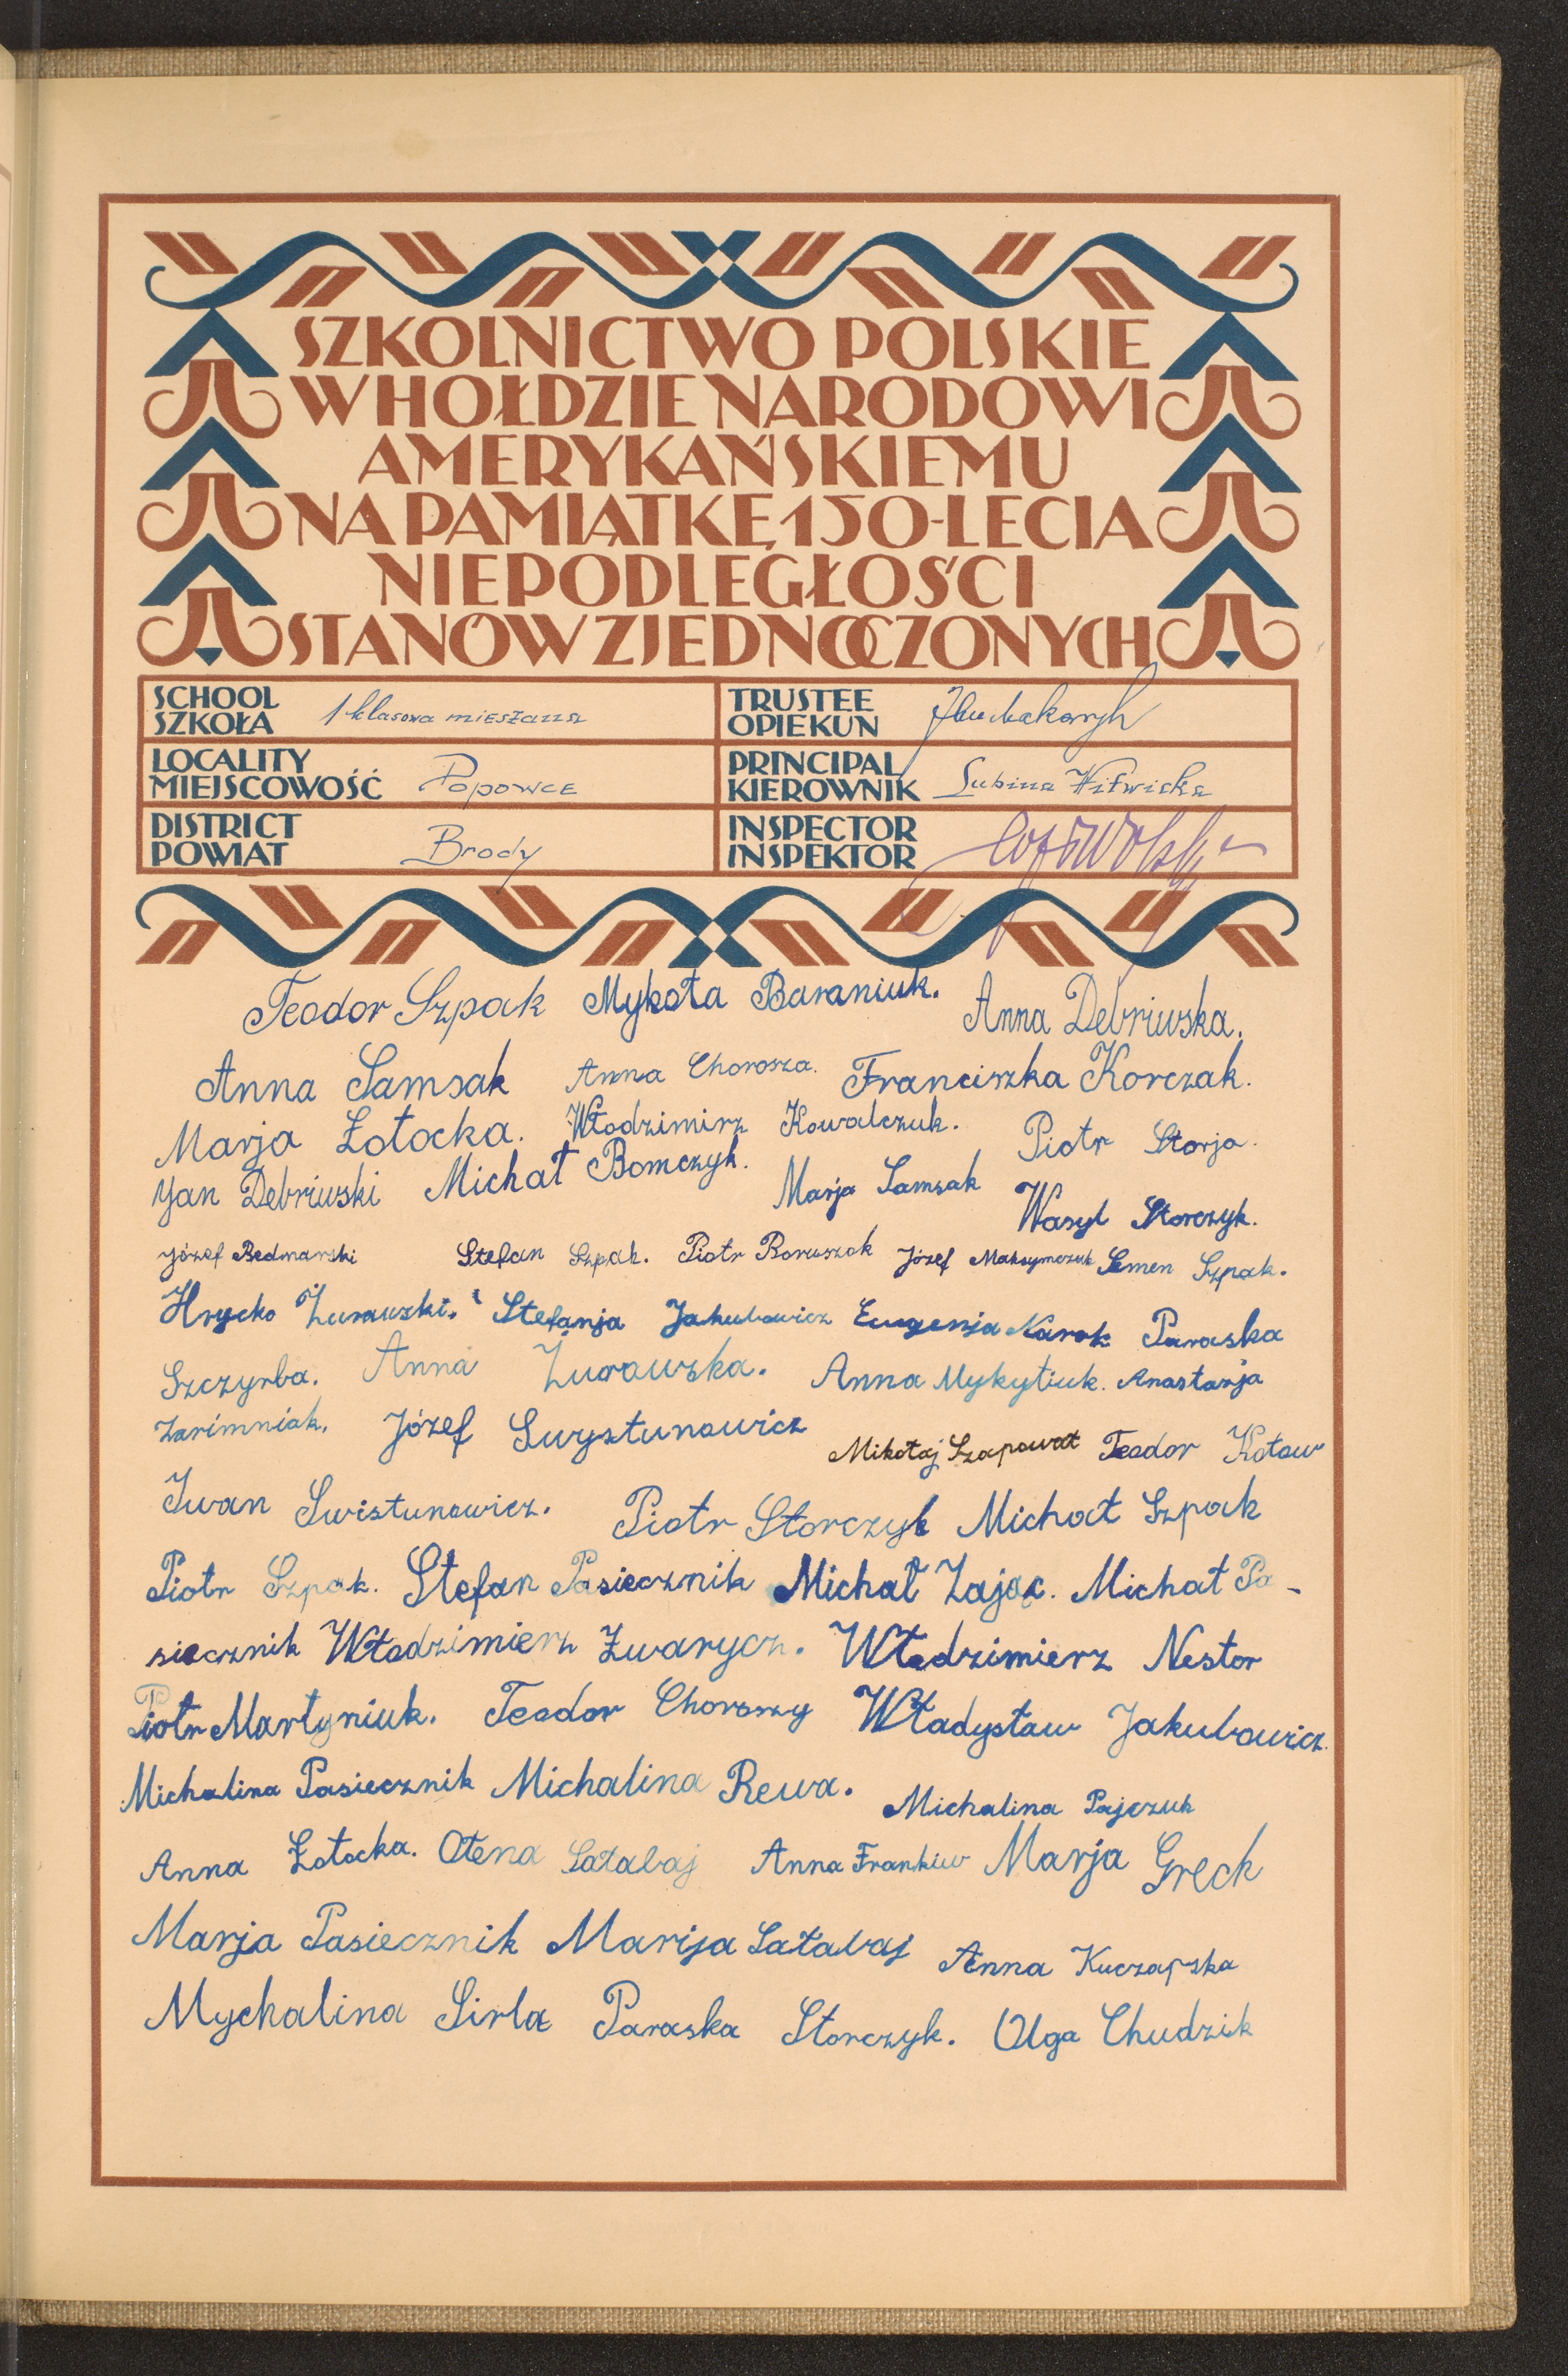 SZKOLNICTWO POLSKIE
W HOŁDZIE NARODOWI
AMERYKAŃSKIEMU
NA PAMIĄTKĘ 150-LECIA
NIEPODLEGŁOŚCI
STANÓW ZJEDNOCZONYCH
SCHOOL
SZKOŁA 1 klasowa mieszana
TRUSTEE
OPIEKUN
LOCALITY
MIEJSCOWOŚĆ Popowce
PRINCIPAL
KIEROWNIK Lubina Witwicka
DISTRICT
POWIAT Brody
INSPECTOR
INSPEKTOR
Teodor Szpak Mykoła Baraniuk. Anna Debriwska.
Anna Samsak Anna Chorosza. Franciszka Korczak.
Marja Łotocka. Włodzimirz Kowalczuk. Piotr Storja.
Jan Debriwski Michał Bomczyk. Marja Samsak Wasyl Storczyk.
Józef Bedmarski Stefan Szpak. Piotr Boruszok Józef Maksymczuk Semen Szpak.
Hrycko Żurawski. Stefanja Jakubowicz Eugenja Karok Paraska
Szczyrba. Anna Żurawska. Anna Mykytiuk. Anastazja
Zarimniak. Józef Swystunowicz Mikołaj Szapował Teodor Kotow
Iwan Swistunowicz. Piotr Storczyk Michał Szpak
Piotr Szpak. Stefan Pasiecznik Michał Zając. Michał Pa-
siecznik Włodzimierz Zwarycz. Włodzimierz Nestor
Piotr Martyniuk. Teodor Choroszy Władysław Jakubowicz.
Michalina Pasiecznik Michalina Rewa. Michalina Pajczuk
Anna Łotocka. Ołena Sałabaj Anna Frankiw Marja Greck
Marja Pasiecznik Marija Sałabaj Anna Kuczapska
Mychalina Sirla Paraska Storczyk. Olga Chudzik